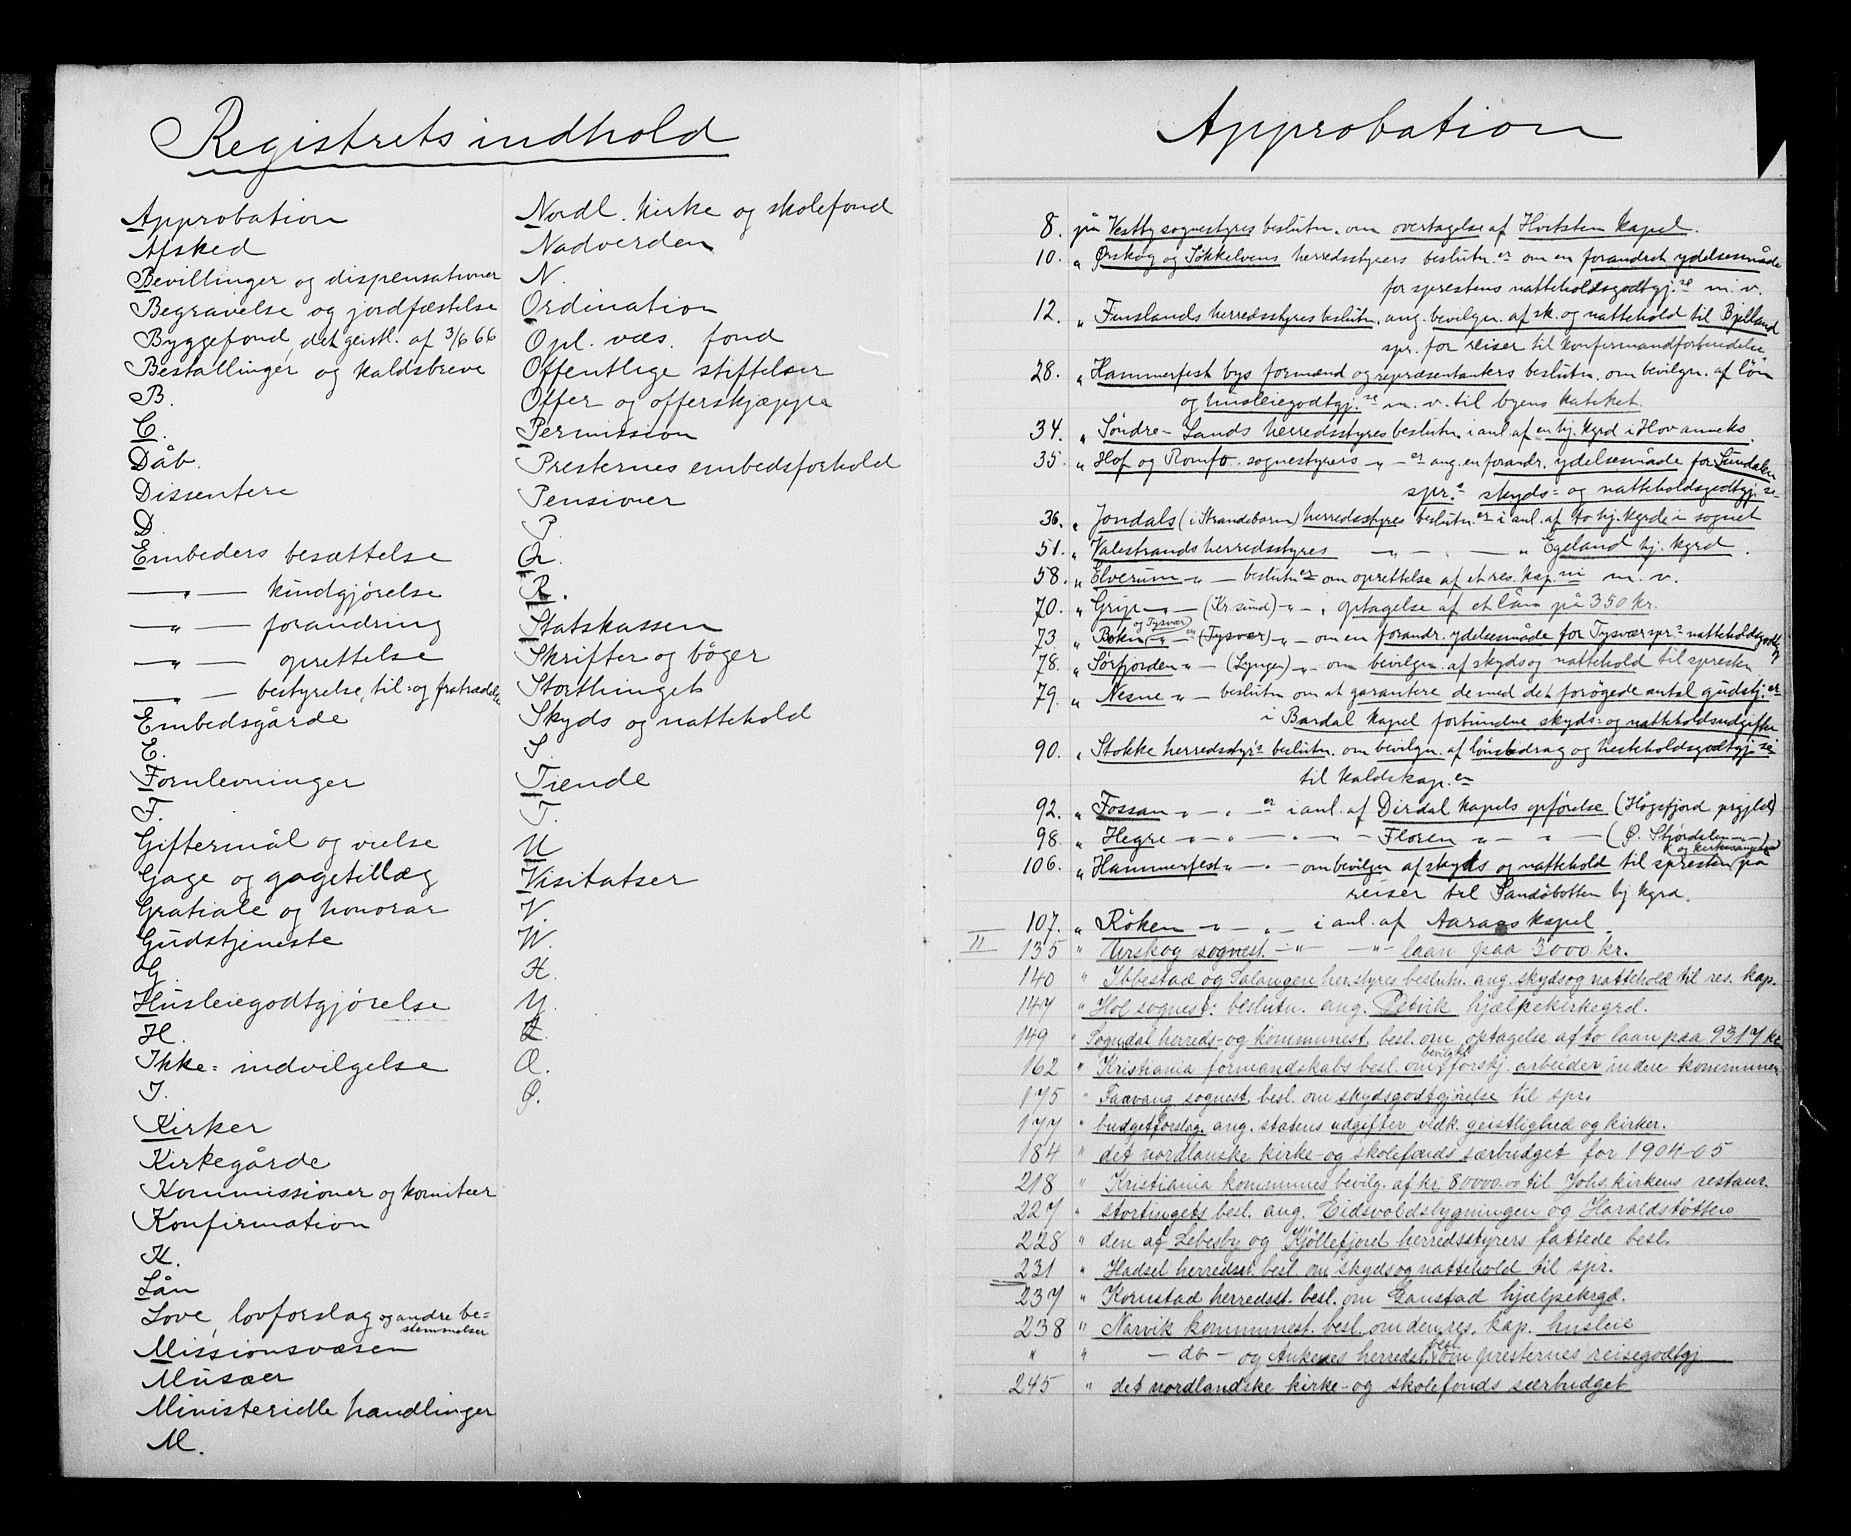 Registrets indhold
Approbation
Afsked
Bevillinger og dispensationer
Begravelse og jordfæstelse
Byggefond, det geistl. af 3/6 66
Bestallinger og kaldsbreve
B.
C.
Dåb.
Dissentere
D.
Embeders besættelse
— „ — kundgjørelse
— „ — forandring
— „ — oprettelse
— „ — bestyrelse, til= og fratrædelse
Embedsgårde
E.
Fornlevninger
F.
Giftermål og vielse
Gage og gagetillæg
Gratiale og honorar
Gudstjeneste
G.
Husleiegodtgjørelse
H.
Ikke= indvilgelse
I.
Kirker
Kirkegårde
Kommissioner og komiteer
Konfirmation
K.
Lån
Love, lovforslag og andre be=
stemmelser
Missionsvæsen
Musæer
Ministerielle handlinger
M.
Nordl. kirke og skolefond
Nadverden
N.
Ordination
Opl. væs. fond
Offentlige stiftelser
Offer og offerskjæppe
Permission
Presternes embedsforhold
Pensioner
P.
Q.
R.
Statskassen
Skrifter og bøger
Storthinget
Skyds og nattehold
S.
Tiende
T.
U
Visitatser
V.
W.
X.
Y.
Z.
Æ.
Ø.
Approbation
8. på Vestby sognestyres beslutn. om overtagelse af Hvitsten kapel.
10. „ Ørskog og Søkkelvens herredsstyrers beslutn.er om en forandret ydelsesmåde
for sprestens natteholdsgodtgj.se m. v.
12. „ Finslands herredsstyres beslutn. ang. bevilgn. af sk. og nattehold til Bjelland
spr. for reiser til konfirmandforberedelse
28. „ Hammerfest bys formænd og repræsentanters beslutn. om bevilgn. af løn
og husleiegodtgj.se m. v. til byens kateket.
34. „ Søndre-Lands herredsstyres beslutn. i anl. af en hj. kgrd i Hov anneks.
35. „ Hof og Romfo sognestyrers — „ — er ang. en forandr. ydelsesmåde for Sundalen
spr.s skyds= og natteholdsgodtgj.se
36. „ Jondals (i Strandebarm) herredsstyres beslutn.er i anl. af to hj. kgrde i sognet
51. „ Valestrands herredsstyres — „ — „ Egeland hj. kgrd.
58. „ Elverum — „ — beslutn.er om oprettelse af et res. kap.ni m. v.
70. „ Grip — „ — (Kr.sund) — „ — „ optagelse af et lån på 350 kr.
73. „ Bokn og Tysvær — „ — er (Tysvær) — „ — om en forandr. ydelsesmåde for Tysvær spr.s natteholdsgodtgj.
78. „ Sørfjorden „ — (Lyngen) — „ — om bevilgn. af skyds og nattehold til spresten
79. „ Nesne „ — beslutn. om at garantere de med det forøgede antal gudstj.er
i Bardal kapel forbundne skyds= og natteholdsudgifter
90. „ Stokke herredsstyr's beslutn. om bevilgn. af lønsbidrag og hesteholdsgodtgj.se
til kaldskap.en
92. „ Fossan — „ — „ er i anl. af Dirdal kapels opførelse (Høgsfjord prgjeld)
98. „ Hegre — „ — „ — „ — „ — Floren — „ — „ — (Ø. Stjørdalen — „ —)
106. „ Hammerfest „ — „ — om bevilgn. af skyds og nattehold til spresten (og kirkesangeren) på
reiser til Sandøbotten hj kgrd.
107. „ Røken — „ — „ — i anl. af Aaraas kapel.
II 135 „ Urskog sognest. — „ — — „ — laan paa 3000 kr.
140 „ Ibbestad og Salangen her.styres beslutn. ang. skyds og nattehold til res. kap.
147 „ Hol sognest: beslutn. ang. Petvik hjælpekirkegrd.
149 „ Sogndal herreds- og kommunest. besl. om optagelse af to laan paa 9317 kr
162 „ Kristiania formandskabs besl. om bevilgn. forskj. arbeider indere kommunen
175 „ Faavang sognest. besl. om skydsgodtgjørelse til spr.
177 „ budgetforslag ang. statens udgifter vedk. geistlighed og kirker.
184 „ det nordlanske kirke- og skolefonds særbudget for 1904-05
218 „ Kristiania kommunes bevilg. af kr. 80000.00 til Johs. kirkens restaur.
227 „ stortingets besl. ang. Eidsvoldsbygningen og Haraldstøtten
228 „ den af Lebesby og Kjøllefjord herredsstyrers fattede besl.
231 „ Hadsel herredsst. besl. om skyds og nattehold til spr.
237 „ Kornstad herredsst. besl. om Gaustad hjælpekrgd.
238 „ Narvik kommunest. besl. om den res. kap. husleie
„ „ — do — og Ankenes herredst. besl. om presternes reisegodtgj
245 „ det nordlandske kirke- og skolefonds særbudget